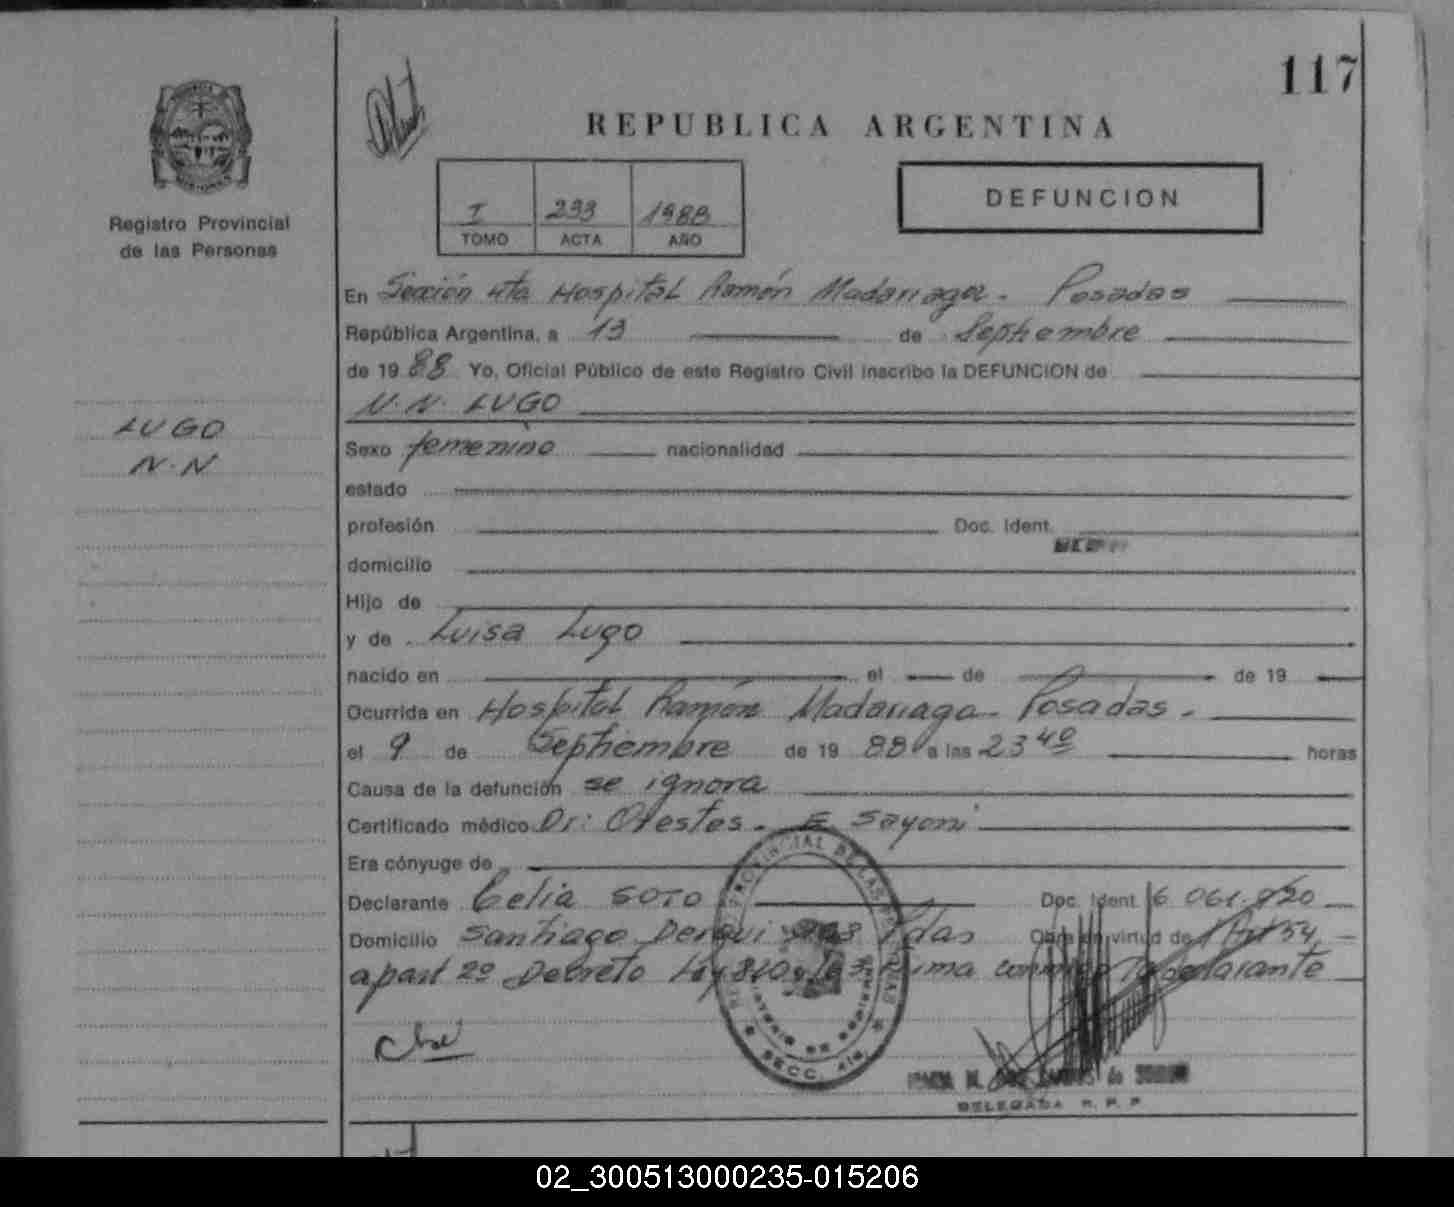 117
REPUBLICA ARGENTINA
DEFUNCION
I 233 1988
TOMO ACTA AÑO
Registro Provincial
de las Personas
LUGO
N.N
En Sección 4ta Hospital Ramón Madariaga - Posadas
República Argentina, a 13 de Septiembre
de 1988 Yo, Oficial Público de este Registro Civil inscribo la DEFUNCION de
N.N. LUGO
Sexo femenino nacionalidad
estado
profesión Doc. Ident.
domicilio
Hijo de
y de Luisa Lugo
nacido en el de de 19
Ocurrida en Hospital Ramón Madariaga - Posadas -
el 9 de Septiembre de 1988 a las 23 40 horas
Causa de la defunción se ignora
Certificado médico Dr: Orestes - E
Era cónyuge de
Declarante Celia SOTO Doc. Ident. 6 061.920
Domicilio Santiago Derqui Pdas Obra en virtud de Art 54
apart 2º Decreto Ley firma conmigo la declarante
SECC. 4ta
DELEGADA R. P. P
02_300513000235-015206